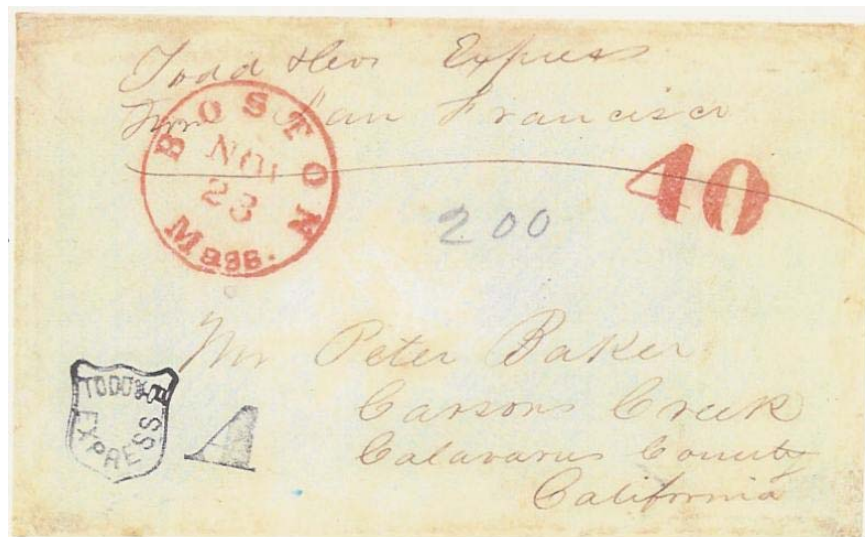 Todd & Cos Express
From San Francisco
BOSTON
NOV
23
Mass.
40
200
Mr Peter Baker
Carsons Creek
Calavarus County
California
TODD & CO
EXPRESS
A